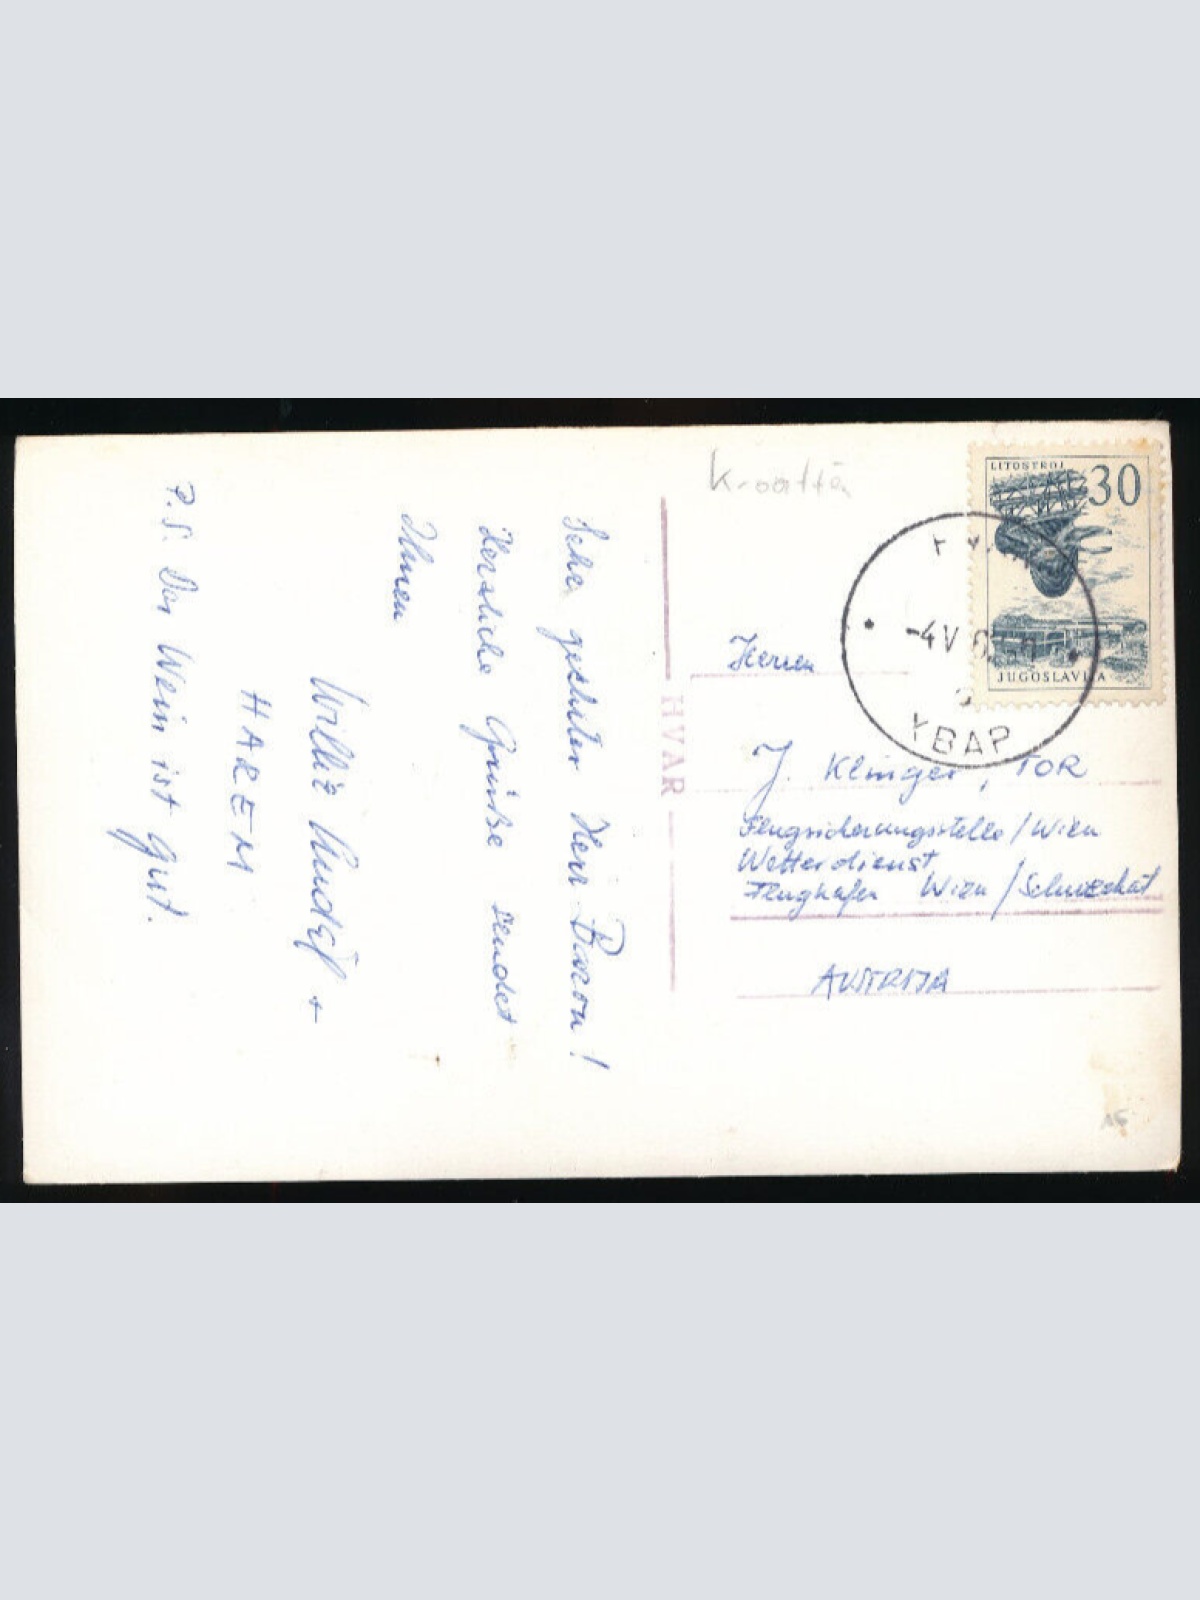 Kroatia
LITOSTROJ
30
JUGOSLAVIJA
-4 V 6
ХВАР
HVAR
Sehr geehrter Herr Baron!
Herzliche Grüße sendet
Ihnen
Willi +
HAREM
P.S. Der Wein ist gut.
Herren
J. Klinger, TOR
Flugsicherungsstelle/Wien
Wetterdienst
Flughafen Wien/Schwechat
AUSTRIJA